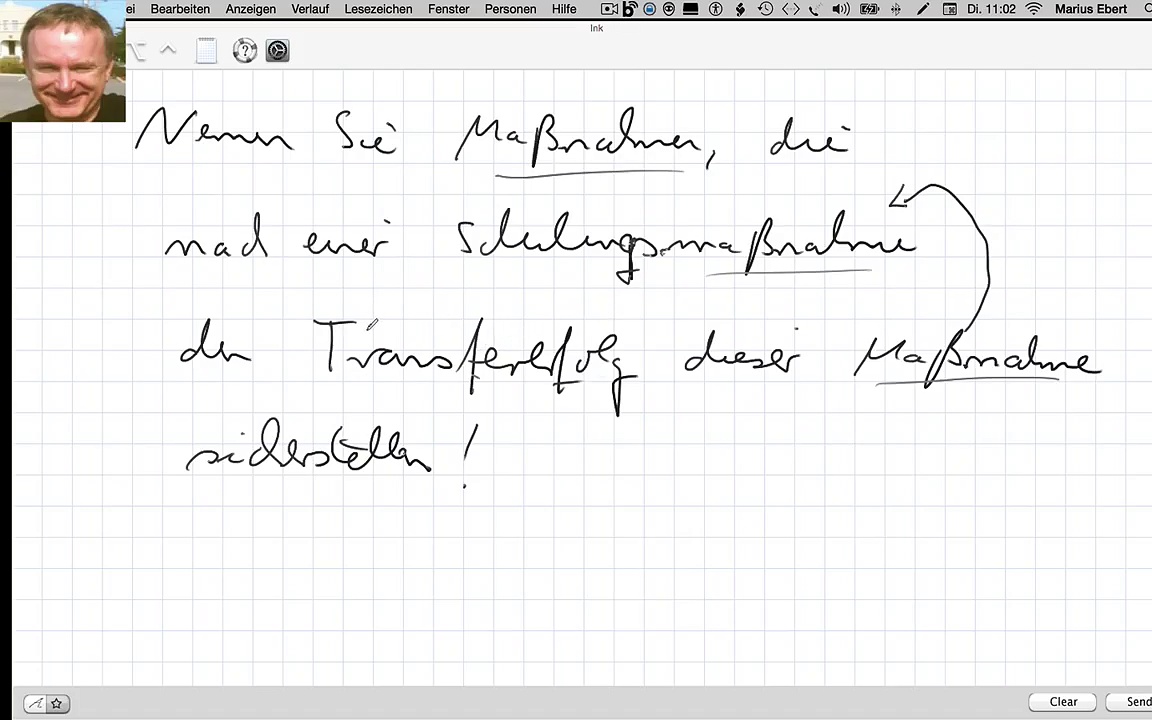 ei Bearbeiten Anzeigen Verlauf Lesezeichen Fenster Personen Hilfe Di. 11:02 Marius Ebert
Ink
Nennen Sie Maßnahmen, die
nach einer Schulungsmaßnahme
den Transfererfolg dieser Maßnahme
sicherstellen!
Clear Send